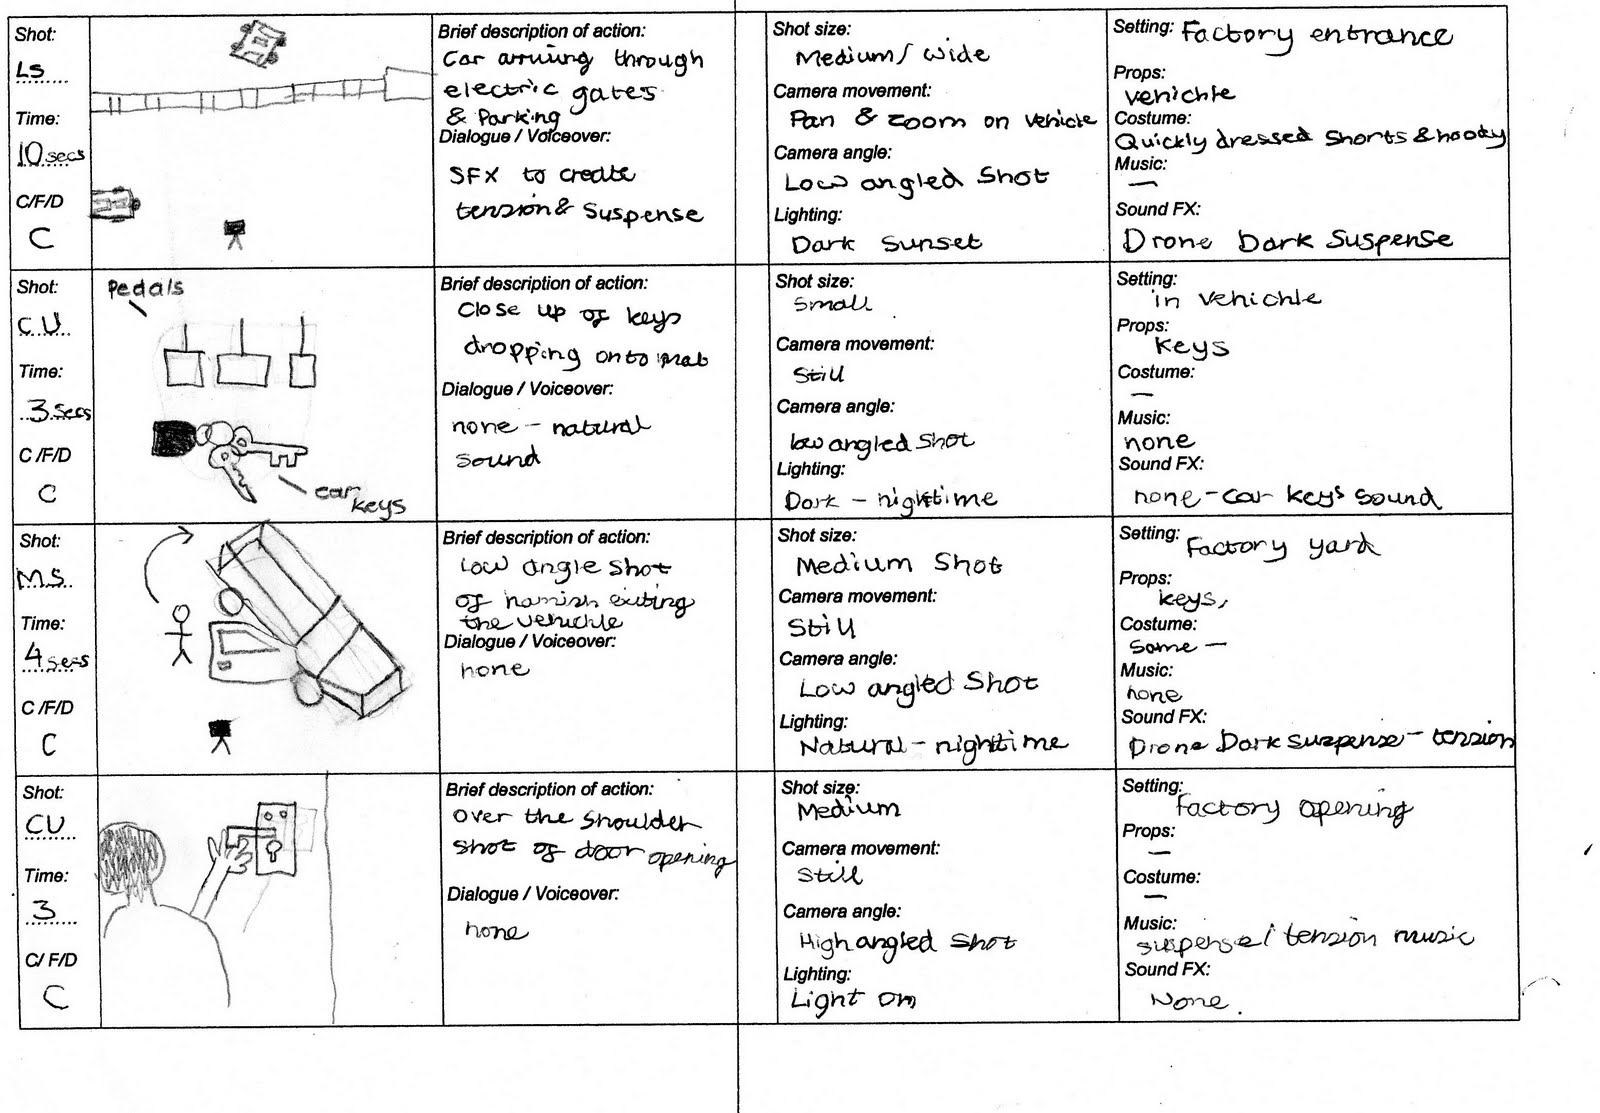 Shot:
LS
Time:
10 secs
C/F/D
C
Brief description of action:
Car arriving through
electric gates
& Parking
Dialogue / Voiceover:
SFX to create
tension & Suspense
Shot size:
Medium / wide
Camera movement:
Pan & zoom on vehicle
Camera angle:
Low angled Shot
Lighting:
Dark Sunset
Setting: Factory entrance
Props:
vehichle
Costume:
Quickly dressed Shorts & hoody
Music:
—
Sound FX:
Drone Dark Suspense
Shot:
C.U
Time:
3 secs
C /F/D
C
Pedals
car
keys
Brief description of action:
Close up of keys
dropping onto mat
Dialogue / Voiceover:
none - natural
sound
Shot size:
Small
Camera movement:
Still
Camera angle:
low angled Shot
Lighting:
Dark - nightime
Setting:
in vehichle
Props:
Keys
Costume:
—
Music:
none
Sound FX:
none - car keys sound
Shot:
M.S.
Time:
4 secs
C /F/D
C
Brief description of action:
Low angle shot
of hamish exiting
the vehichle
Dialogue / Voiceover:
none
Shot size:
Medium Shot
Camera movement:
Still
Camera angle:
Low angled Shot
Lighting:
Natural - nightime
Setting:
Factory yard
Props:
keys,
Costume:
Same —
Music:
none
Sound FX:
Drone Dark suspense - tension
Shot:
CU
Time:
3
C/ F/D
C
Brief description of action:
Over the Shoulder
Shot of door opening
Dialogue / Voiceover:
none
Shot size:
Medium
Camera movement:
Still
Camera angle:
High angled Shot
Lighting:
Light on
Setting:
Factory opening
Props:
—
Costume:
—
Music:
suspense / tension music
Sound FX:
None.